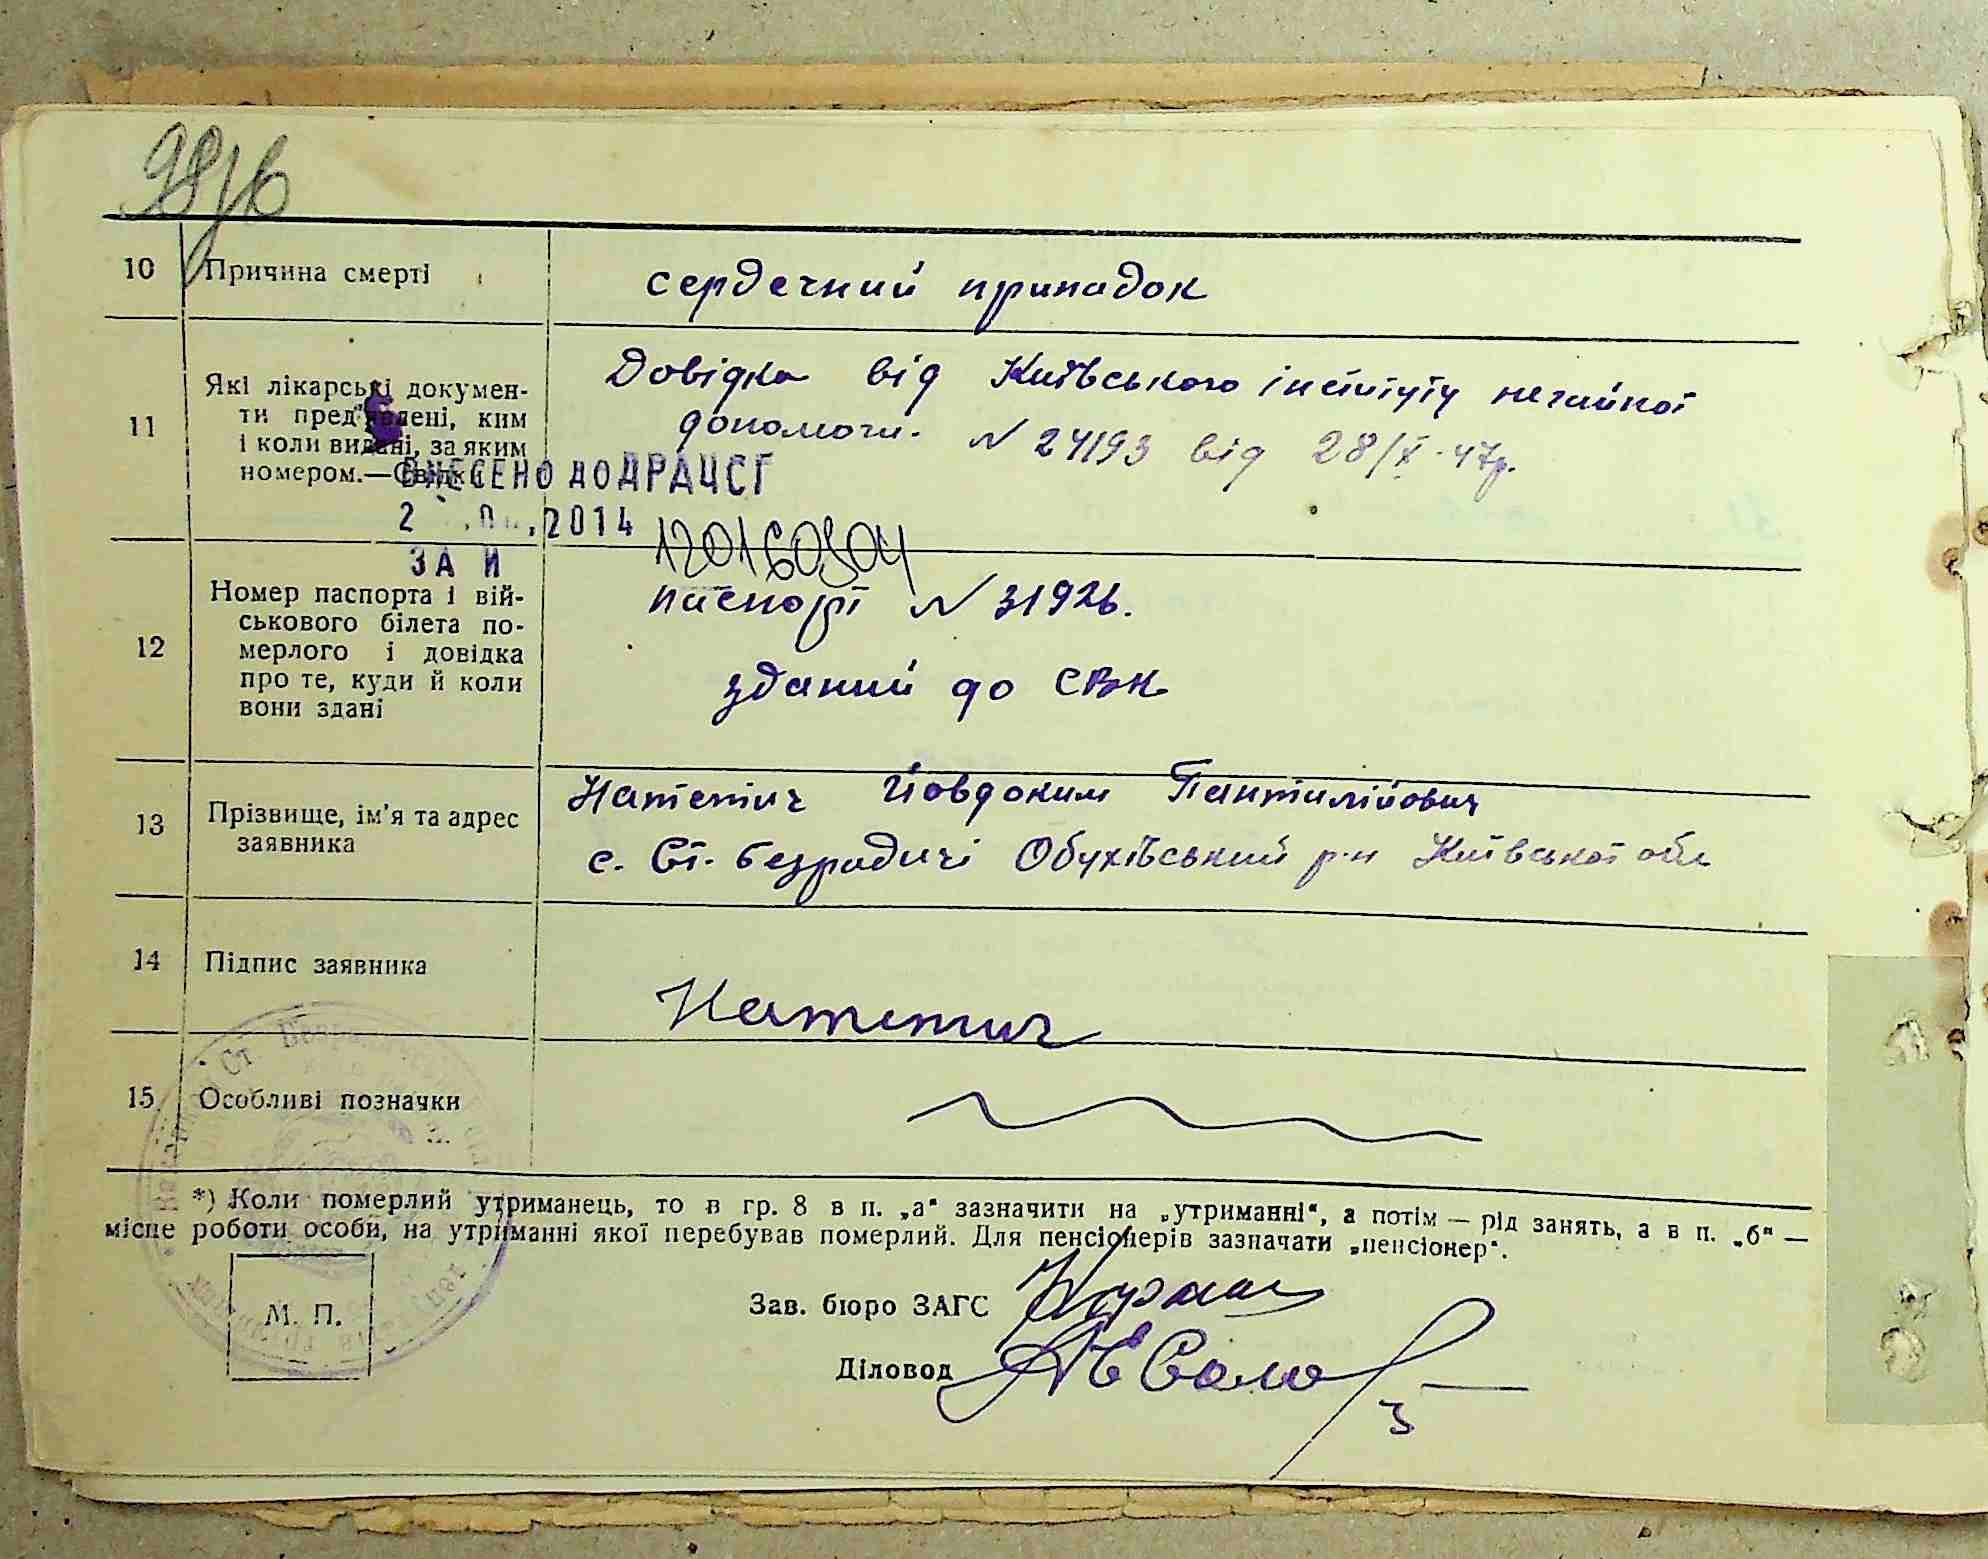 98зв
10 Причина смерті сердечний припадок
11 Які лікарські докумен-
ти пред'явлені, ким
і коли видані, за яким
номером.—Свідки
Довідка від Київського інституту негайної
допомоги. N 24193 від 28/X-47р.
ВНЕСЕНО ДО ДРАЦСГ
2014
ЗА N 120160304
12 Номер паспорта і вій-
ськового білета по-
мерлого і довідка
про те, куди й коли
вони здані
паспорт N 31926.
зданий до СВК
13 Прізвище, ім'я та адрес
заявника
Натетич Йовдоким Пантилійович
с. Ст. Безрадичі Обухівський р-н Київської обл
14 Підпис заявника Натетич
15 Особливі позначки
*) Коли померлий утриманець, то в гр. 8 в п. „а“ зазначити на „утриманні“, а потім — рід занять, а в п. „б“ —
місце роботи особи, на утриманні якої перебував померлий. Для пенсіонерів зазначати „пенсіонер“.
М. П.
Зав. бюро ЗАГС
Діловод